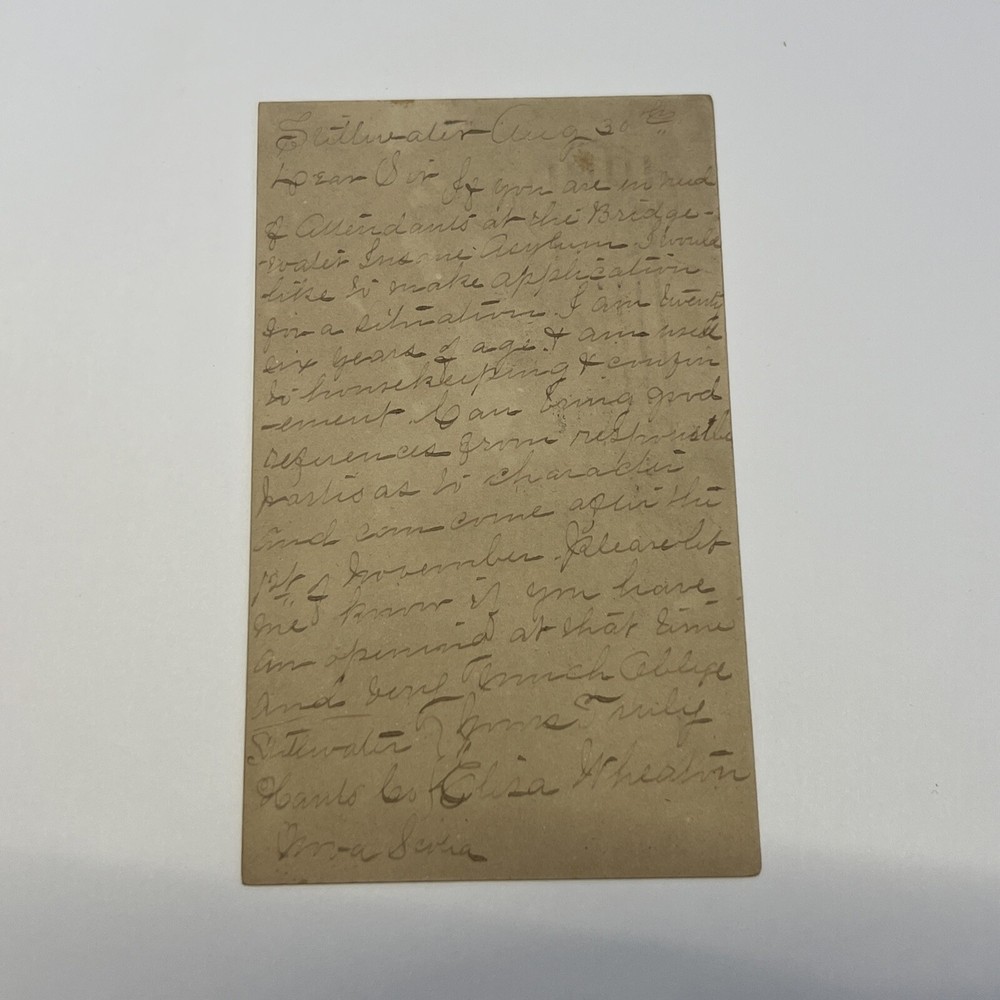 Stillwater Aug 30th
Dear Sir If you are in need
of Attendants at the Bridge-
-water Insane Asylum I would
like to make application
for a situation. I am twenty
six years of age. I am used
to housekeeping & confin
-ement. Can bring good
references from responsible
parties as to character
and can come after the
1st of November. Please let
me know if you have
an opening at that time
and very much Oblige
Stillwater Yours Truly
Hants Co Eliza Wheaton
Nova Scotia